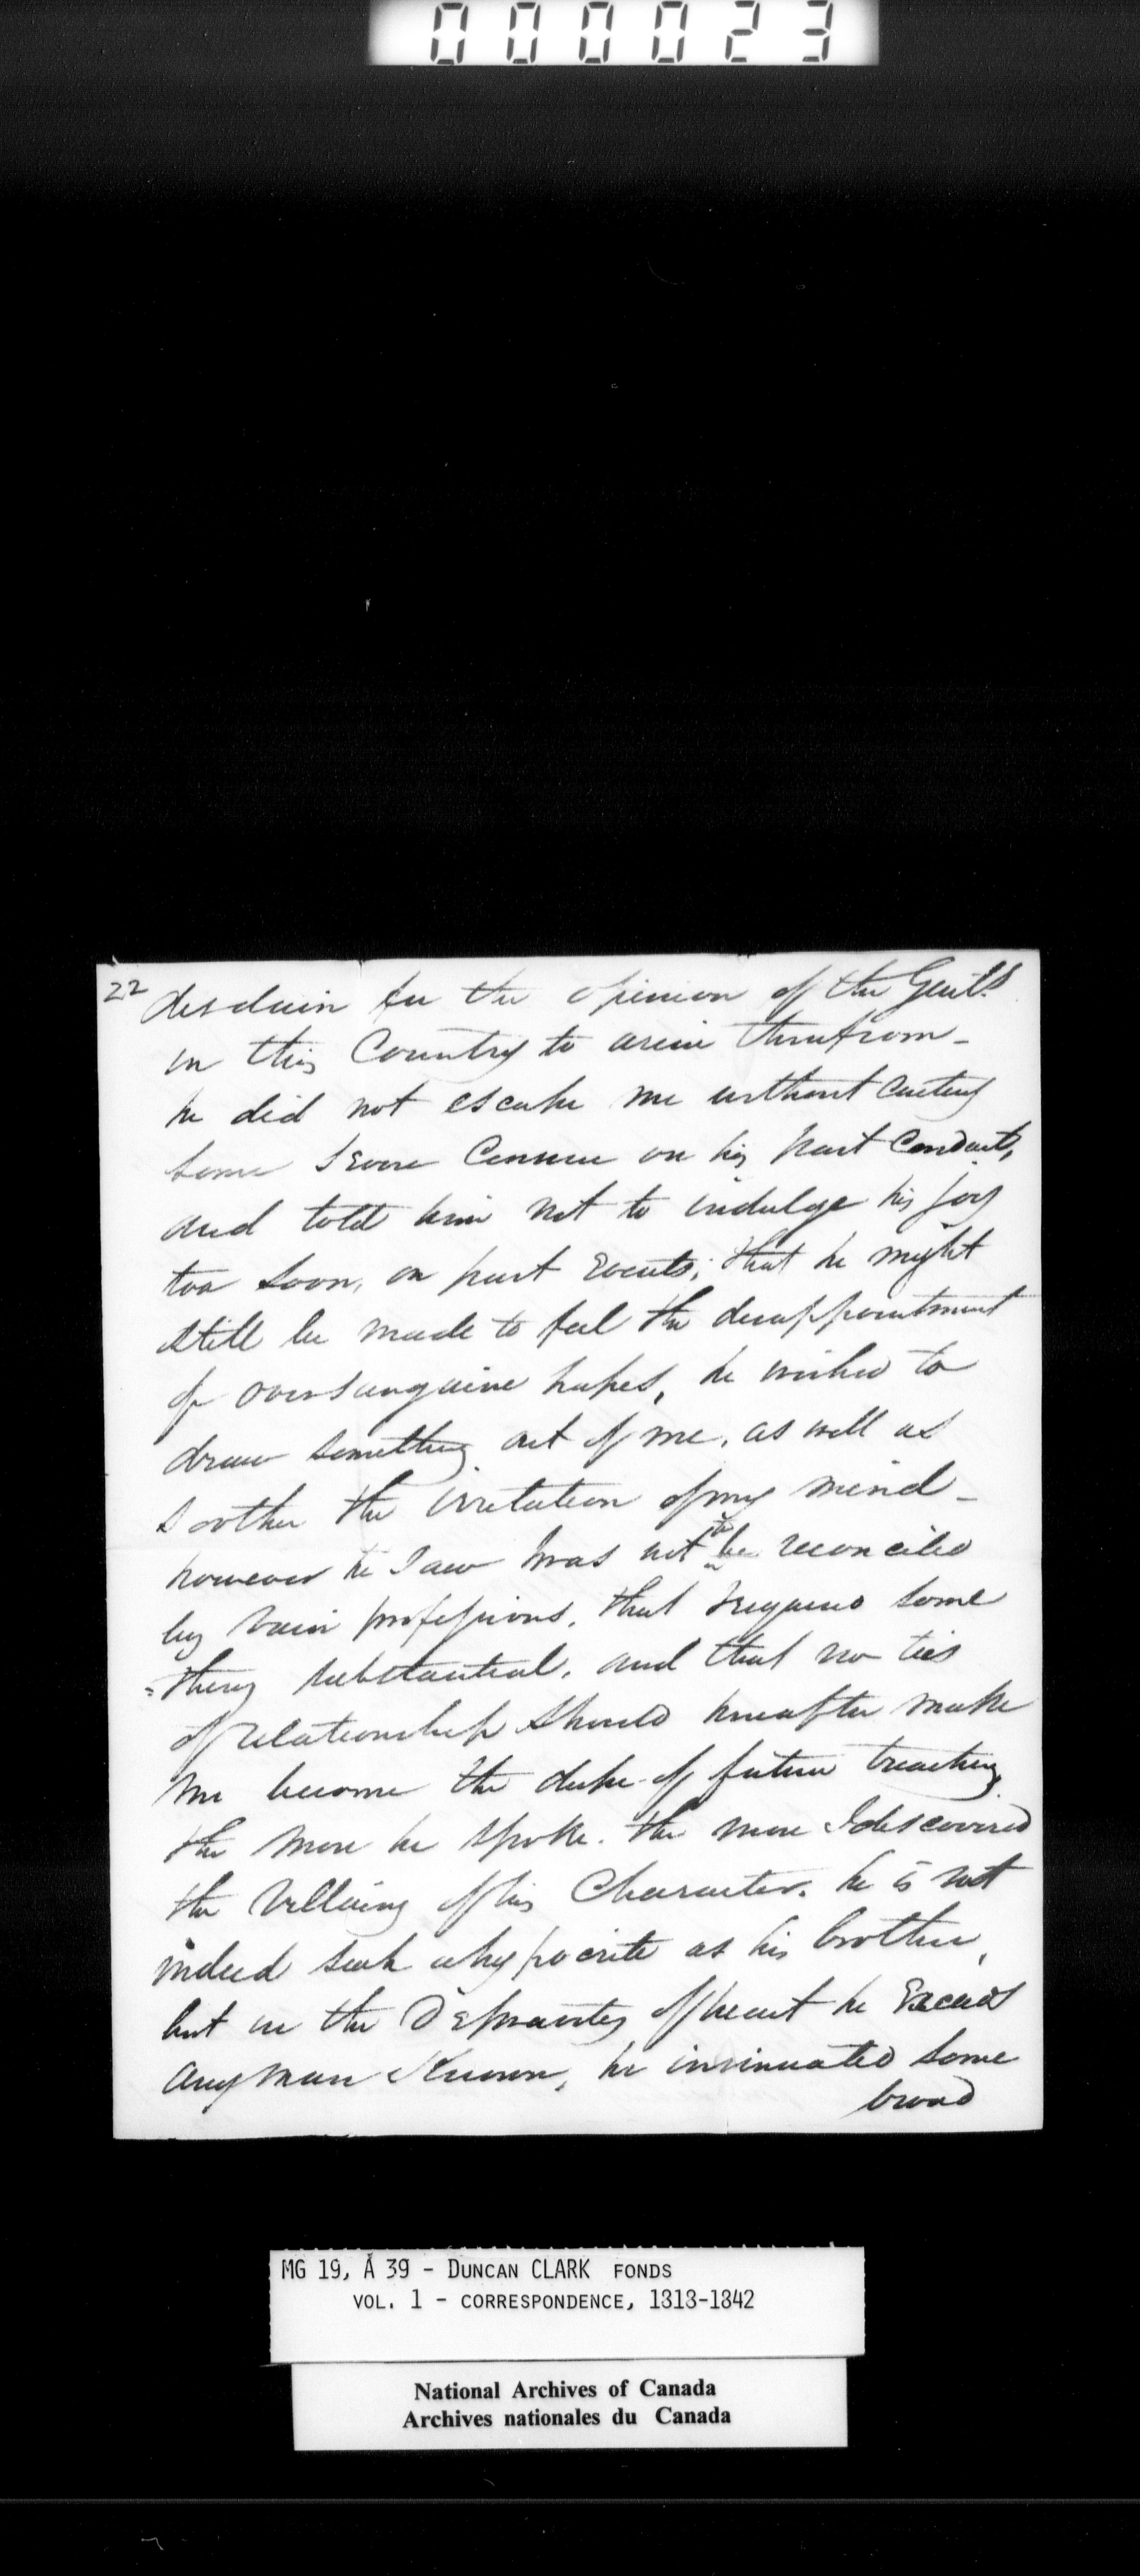 000023
22
disdain for the opinion of the Gentls
in this Country to arise therefrom -
he did not escape me without casting
some severe Censure on his past Conduct,
and told him not to indulge his joy
too soon, on past Events; that he might
still be made to feel the disappointment
of oversanguine hopes, he wished to
draw something out of me, as well as
soothe the irritation of my mind -
however he saw I was not to be reconciled
by vain professions, that I required some
=thing substantial, and that no ties
of relationship should hereafter make
me become the dupe of future treachery
the more he spoke. the more I discovered
the Villainy of his Character. he is not
indeed such a hypocrite as his brother,
but in the Depravity of heart he Exceeds
any man I known, he insinuated some
broad
MG 19, A 39 - DUNCAN CLARK FONDS
VOL. 1 - CORRESPONDENCE, 1813-1842
National Archives of Canada
Archives nationales du Canada